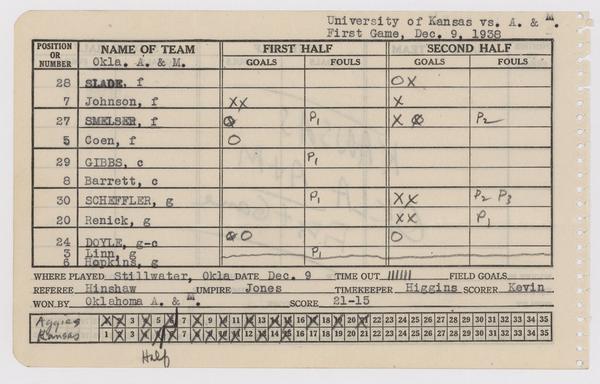 University of Kansas vs. A. & M.
First Game, Dec. 9, 1938
POSITION OR NUMBER NAME OF TEAM FIRST HALF SECOND HALF
Okla. A. & M. GOALS FOULS GOALS FOULS
28 SLADE, f O X
7 Johnson, f X X X
27 SMELSER, f P1 X P2
5 Coen, f O
29 GIBBS, c P1
8 Barrett, c
30 SCHEFFLER, g P1 X X P2 P3
20 Renick, g X X P1
24 DOYLE, g-c O O
3 Linn, g P1
6 Hopkins, g
WHERE PLAYED Stillwater, Okla DATE Dec. 9 TIME OUT |||||| FIELD GOALS
REFEREE Hinshaw UMPIRE Jones TIMEKEEPER Higgins SCORER Kevin
WON BY Oklahoma A. & M. SCORE 21-15
Aggies 1 2 3 4 5 6 7 8 9 10 11 12 13 14 15 16 17 18 19 20 21 22 23 24 25 26 27 28 29 30 31 32 33 34 35
Kansas 1 2 3 4 5 6 7 8 9 10 11 12 13 14 15 16 17 18 19 20 21 22 23 24 25 26 27 28 29 30 31 32 33 34 35
Half